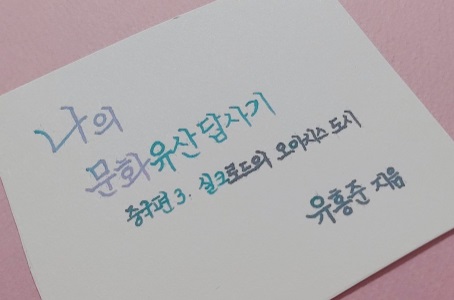 나의
문화유산답사기
중국편 3. 실크로드의 오아시스 도시
유홍준 지음